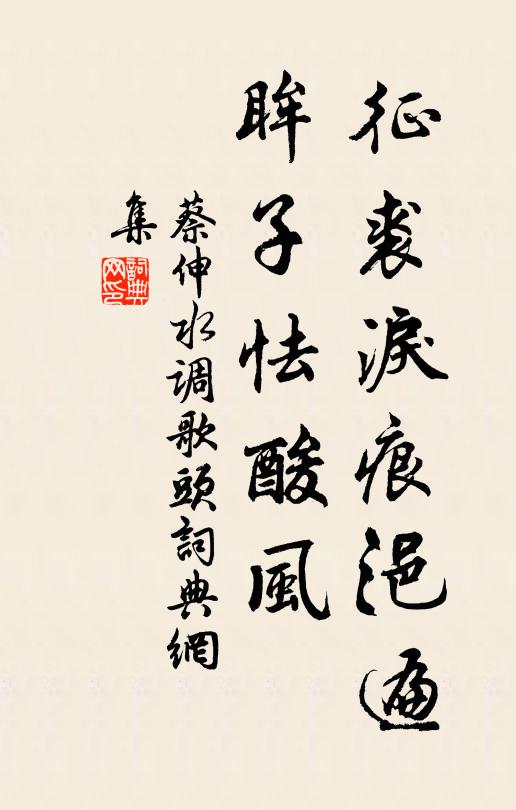 征裘淚痕浥遍
眸子怯酸風
蔡伸水调歌頭詞典網
集
詞典
网印